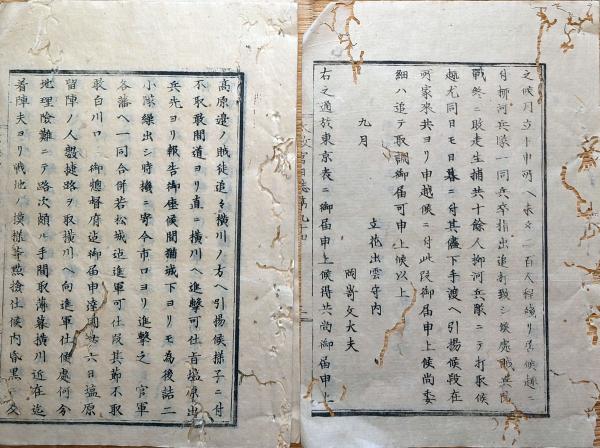 之候川立ト申所ヘ未タ一百人程殘リ居候趣ニ
付柳河兵隊一同兵卒指出追打致シ候處賊兵防
戰終ニ敗走生捕共十餘人柳河兵隊ニテ打取候
趣尤同日モ日暮ニ付其儘下手渡ヘ引揚候段在
所家來共ヨリ申越候ニ付此段御届申上候尚委
細ハ追テ取調御届可申上候以上
九月
立花出雲守内
岡嵜文大夫
右之通於東京表ニ御届申上候得共尚御届申上
政官日誌第九十四
高原邊ノ賊徒追々橫川ノ方ヘ引揚候樣子ニ付
不取敢間道ヨリ直ニ橫川ヘ進擊可仕旨塩原出
兵先ヨリ報告御座候間猶城下ヨリモ為後詰二
小隊繰出シ時機ニ寄今市口ヨリ進擊之 官軍
各藩ヘ一同合併若松城迄進軍可仕段其節不取
敢白川口 御總督府迄御届申達同六日塩原
留陣ノ人數捷路ヲ取橫川ヘ向進軍仕候處何分
地理險難ニテ路次頗ル手間取薄暮橫川近在迄
着陣夫ヨリ戰地ノ模樣等點撿仕候内昏黑ニ及